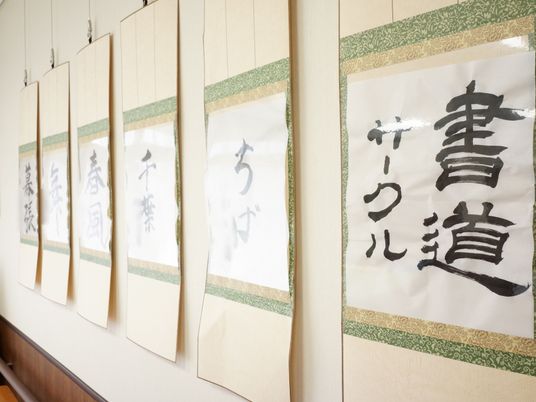 書道
サークル
ちば
千葉
春風
幕張